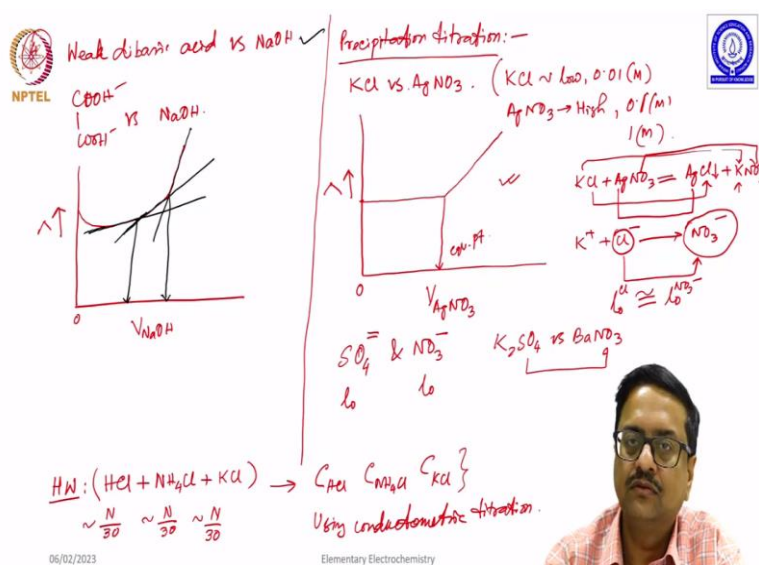 Weak dibasic acid vs NaOH ✓
NPTEL
COOH⁻
|
COOH⁻ vs NaOH.
Λ↑
0
V_NaOH
Precipitation titration:-
KCl vs. AgNO₃. (KCl ~ low, 0.01(M)
AgNO₃ → High, 0.1(M)
1(M).
Λ↑
equi. pt.
0
V_AgNO₃
KCl + AgNO₃ = AgCl↓ + KNO₃
K⁺ + Cl⁻ → NO₃⁻
l₀^Cl ≅ l₀^NO₃⁻
SO₄⁼ & NO₃⁻
l₀ l₀
K₂SO₄ vs BaNO₃
HW: (HCl + NH₄Cl + KCl) → C_HCl C_NH₄Cl C_KCl }
~N/30 ~N/30 ~N/30
Using conductometric titration.
06/02/2023
Elementary Electrochemistry